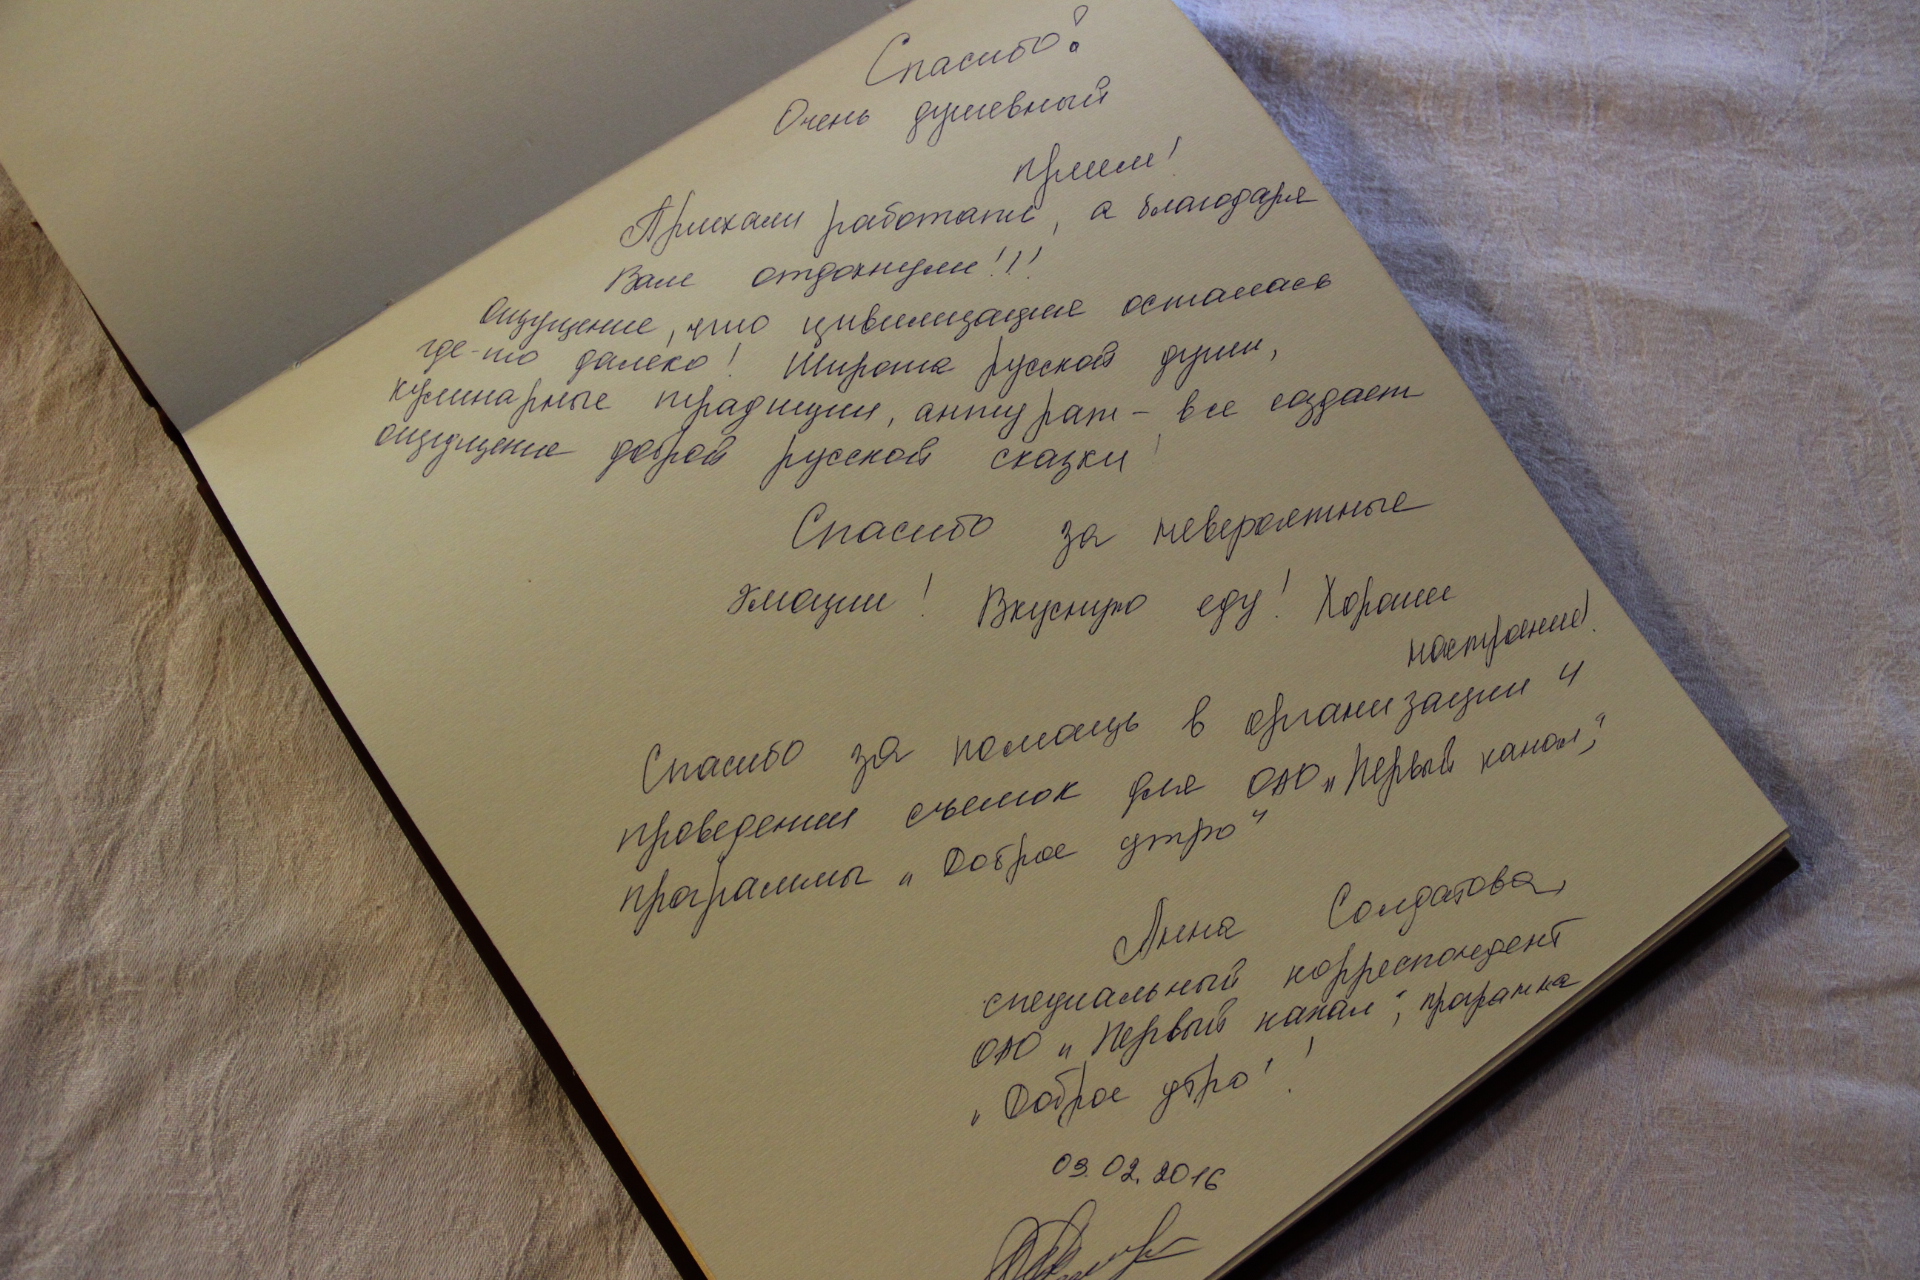 Спасибо!
Очень душевный
прием!
Приехали работать, а благодаря
Вам отдохнули!!!
Ощущение, что цивилизация осталась
где-то далеко! Широта русской души,
кулинарные традиции, антураж - все создает
ощущение доброй русской сказки!
Спасибо за невероятные
эмоции! Вкусную еду! Хорошее
настроение!
Спасибо за помощь в организации и
проведении съемок для ОАО „Первый канал“,
программы „Доброе утро“
Анна Солдатова,
специальный корреспондент
ОАО „Первый канал“, программа
„Доброе утро“!
03.02.2016